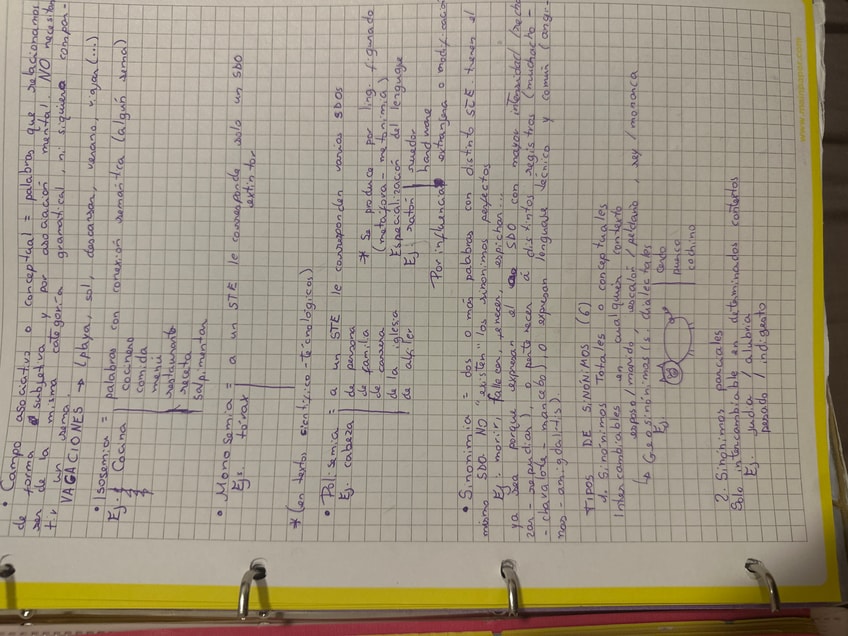 • Campo asociativo o conceptual = palabras que relacionamos
de forma subjetiva y por asociación mental. NO necesitan
ser de la misma categoría gramatical, ni siquiera compar-
tir un sema.
VACACIONES → (playa, sol, descansar, verano, viajar (...)
• Isosemia = palabras con conexión semántica (algún sema)
Ej: Cocina
cocinero
comida
menú
restaurante
receta
salpimentar
• Monosemia = a un STE le corresponde solo un SDO
Ejs tórax
extintor
* (en textos científico-tecnológicos)
• Polisemia = a un STE le corresponden varios SDOS
Ej. cabeza
de persona
de familia
de carrera
de la iglesia
de alfiler
* Se produce por ling. figurado
(metáfora - metonimia)
Especialización del lenguaje
Ej: ratón
roedor
hardware
Por influencia extranjera o modificación
• Sinonimia = dos o más palabras con distinto STE tienen el
mismo SDO NO "existen" los sinónimos perfectos
Ej. morir, fallecer, perecer, espichar...
ya sea porque expresan el SDO con mayor intensidad (recha-
zar - repudiar), o pertenecer a distintos registros (muchacho -
- chavalote - mancebo), o expresan lenguaje técnico y común (angi-
nas - amigdalitis).
TIPOS DE SINÓNIMOS (6)
1. Sinónimos Totales o conceptuales
Intercambiables en cualquier contexto
esposo/marido, escalón/peldaño rey/monarca
↳ Geosinónimos dialectales
Ej:
cerdo
puerco
cochino
2. Sinónimos parciales
Solo intercambiable en determinados contextos
Ej. judía / alubia
pesado / indigesto